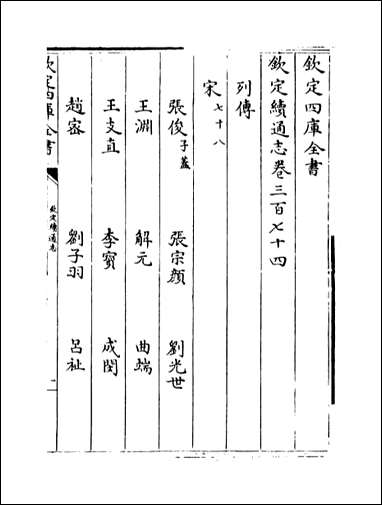 欽定四庫全書
欽定續通志卷三百七十四
列傳
宋七十八
張俊子蓋 張宗顔 劉光世
王淵 解元 曲端
王友直 李寶 成閔
趙密 劉子羽 呂祉
欽定四庫全書 欽定續通志 一